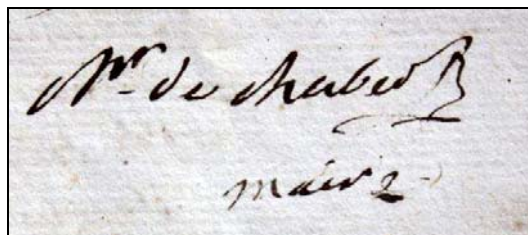 Mr. de Chabert
maire